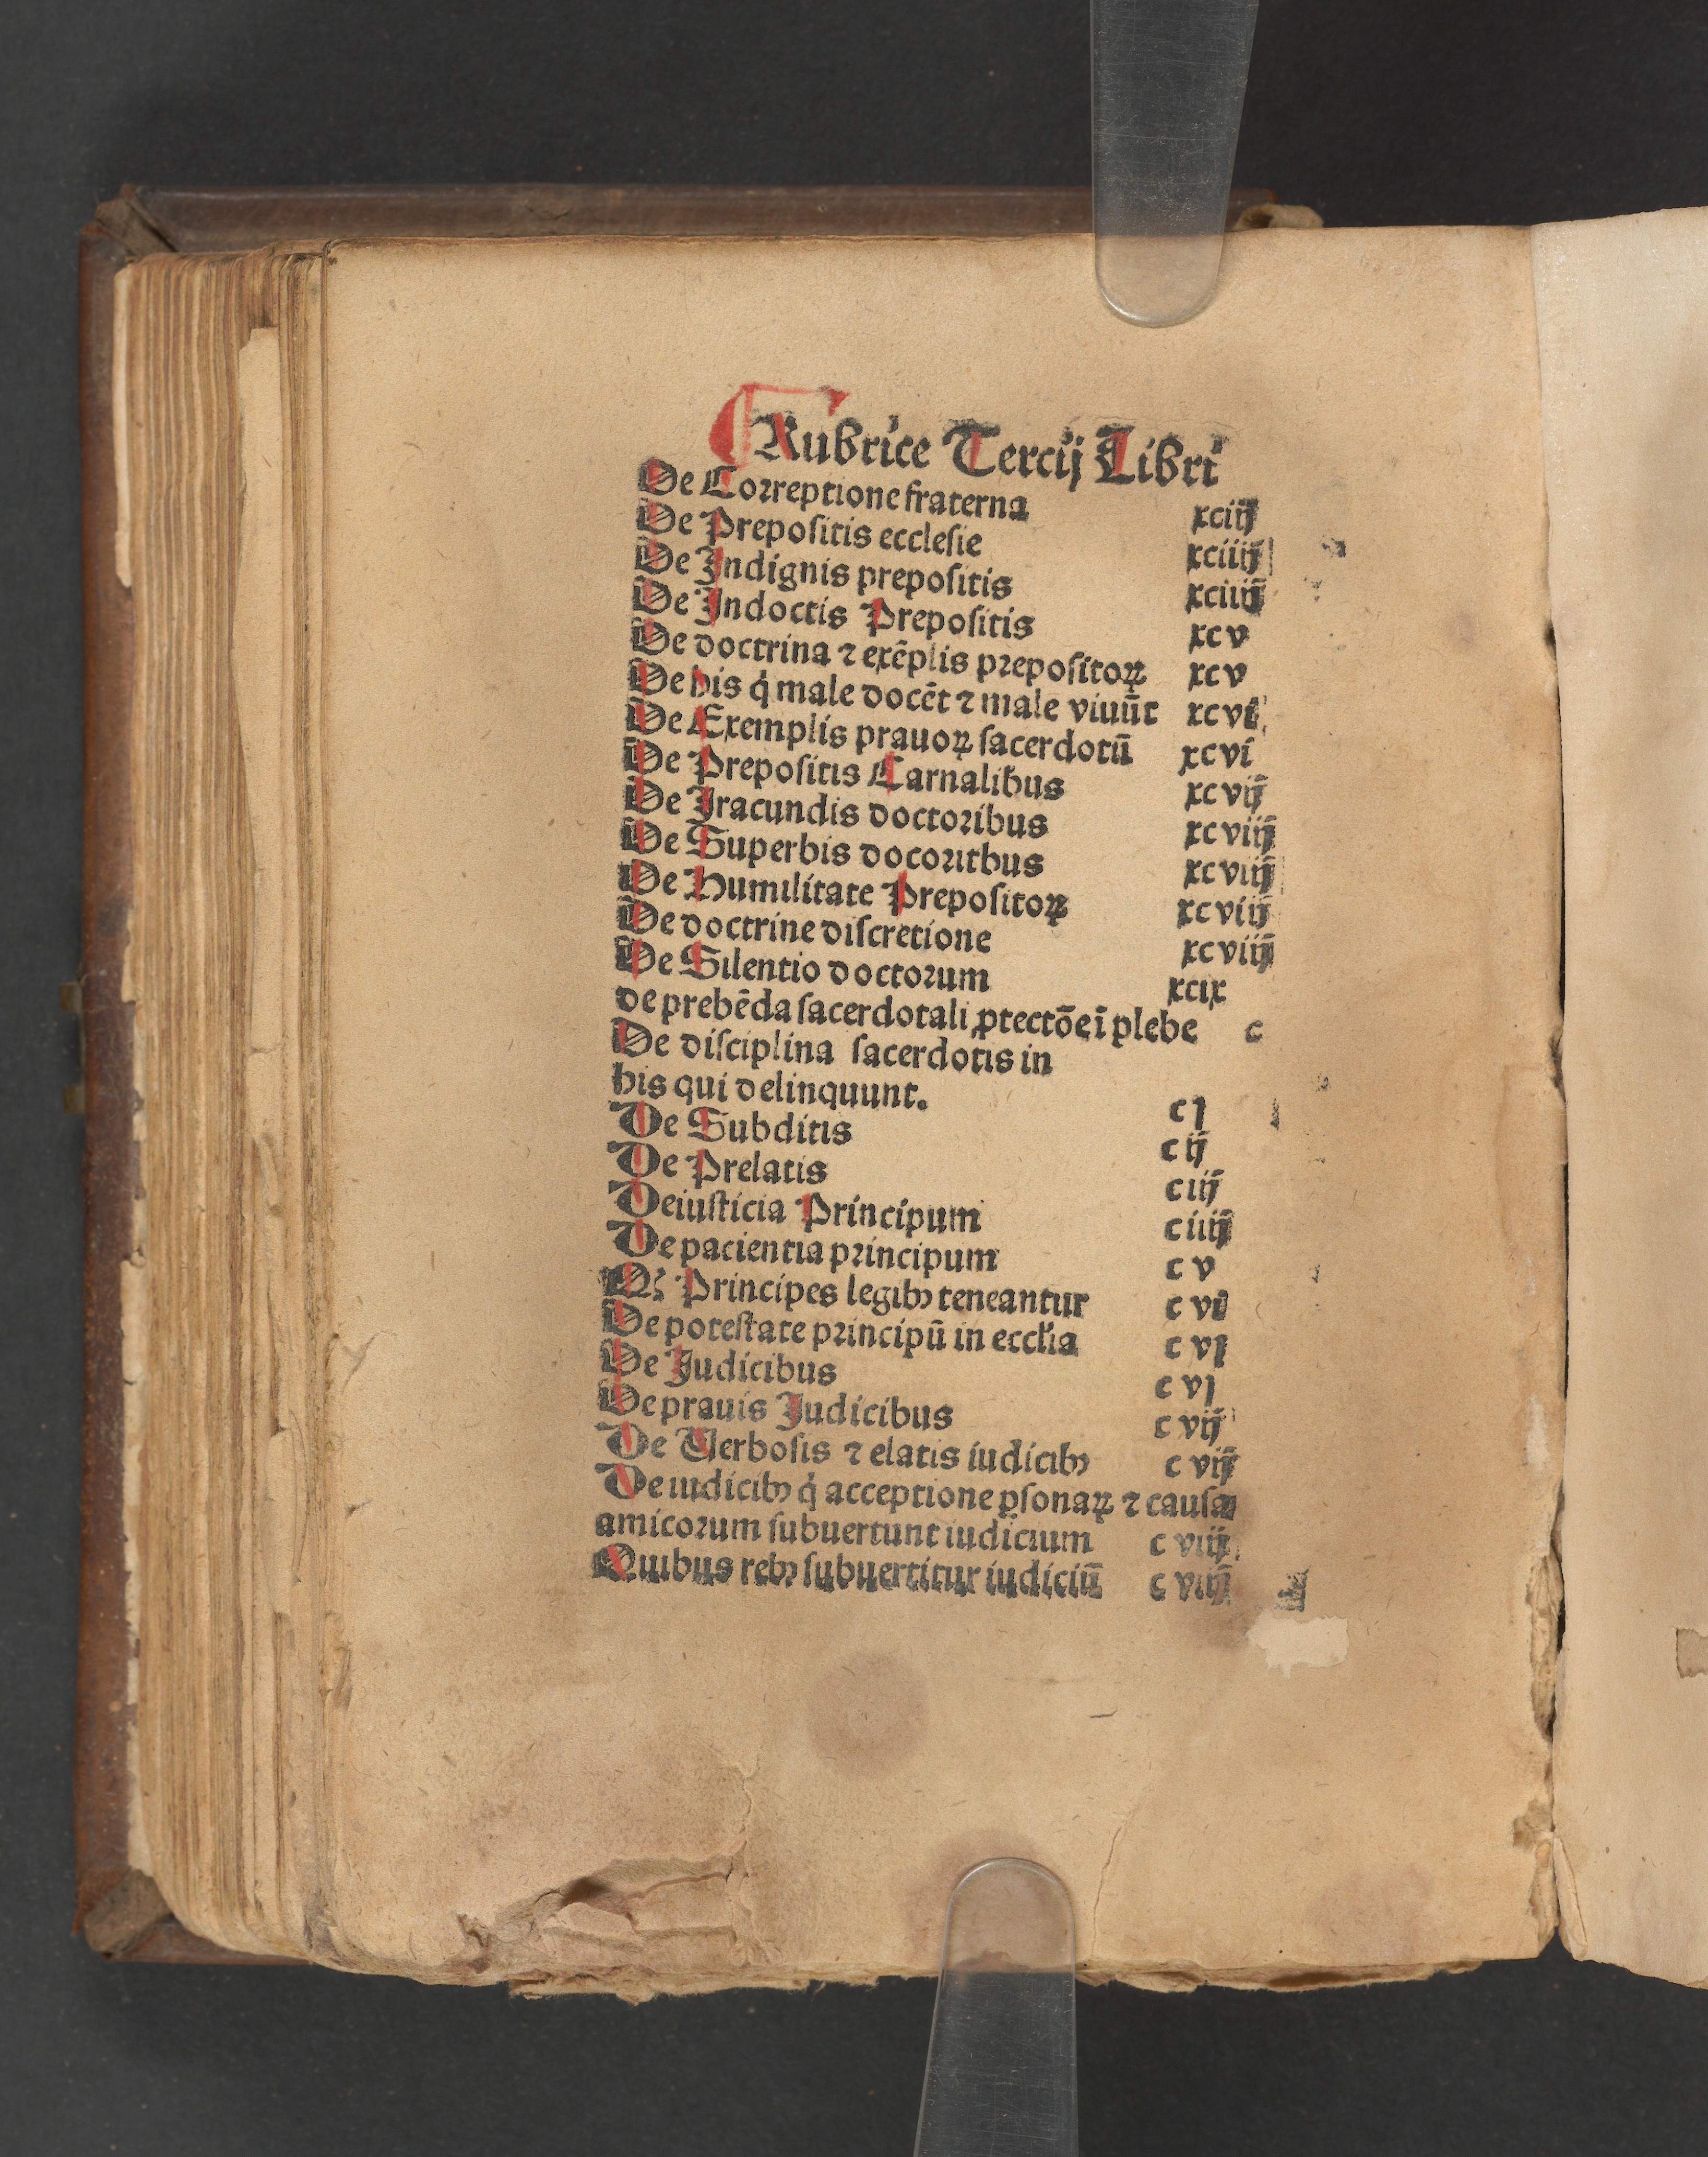 Rubrice Tercij Libri
De Correptione fraterna xciij
De Prepositis ecclesie xciiij
De Indignis prepositis xciiij
De Indoctis Prepositis xcv
De doctrina ⁊ exēplis prepositoꝝ xcv
De his q̇ male docēt ⁊ male viuūt xcvi
De Exemplis prauoꝝ sacerdotū xcvi
De Prepositis Carnalibus xcvij
De Iracundis doctoribus xcviij
De Superbis docoritbus xcviij
De Humilitate Prepositoꝝ xcviij
De doctrine discretione xcviij
De Silentio doctorum xcix
de prebēda sacerdotali ꝓtectōe ī plebe c
De disciplina sacerdotis in
his qui delinquunt. cj
De Subditis cij
De Prelatis ciij
De iusticia Principum ciiij
De pacientia principum cv
Qꝫ Principes legibꝰ teneantur cvi
De potestate principū in eccl'ia cvj
De Iudicibus cvj
De prauis Iudicibus cvij
De Verbosis ⁊ elatis iudicibꝰ cvij
De iudicibꝰ q̇ acceptione ꝑsonaꝝ ⁊ causa
amicorum subuertunt iudicium cviij
Quibus rebꝰ subuertitur iudiciū cviij